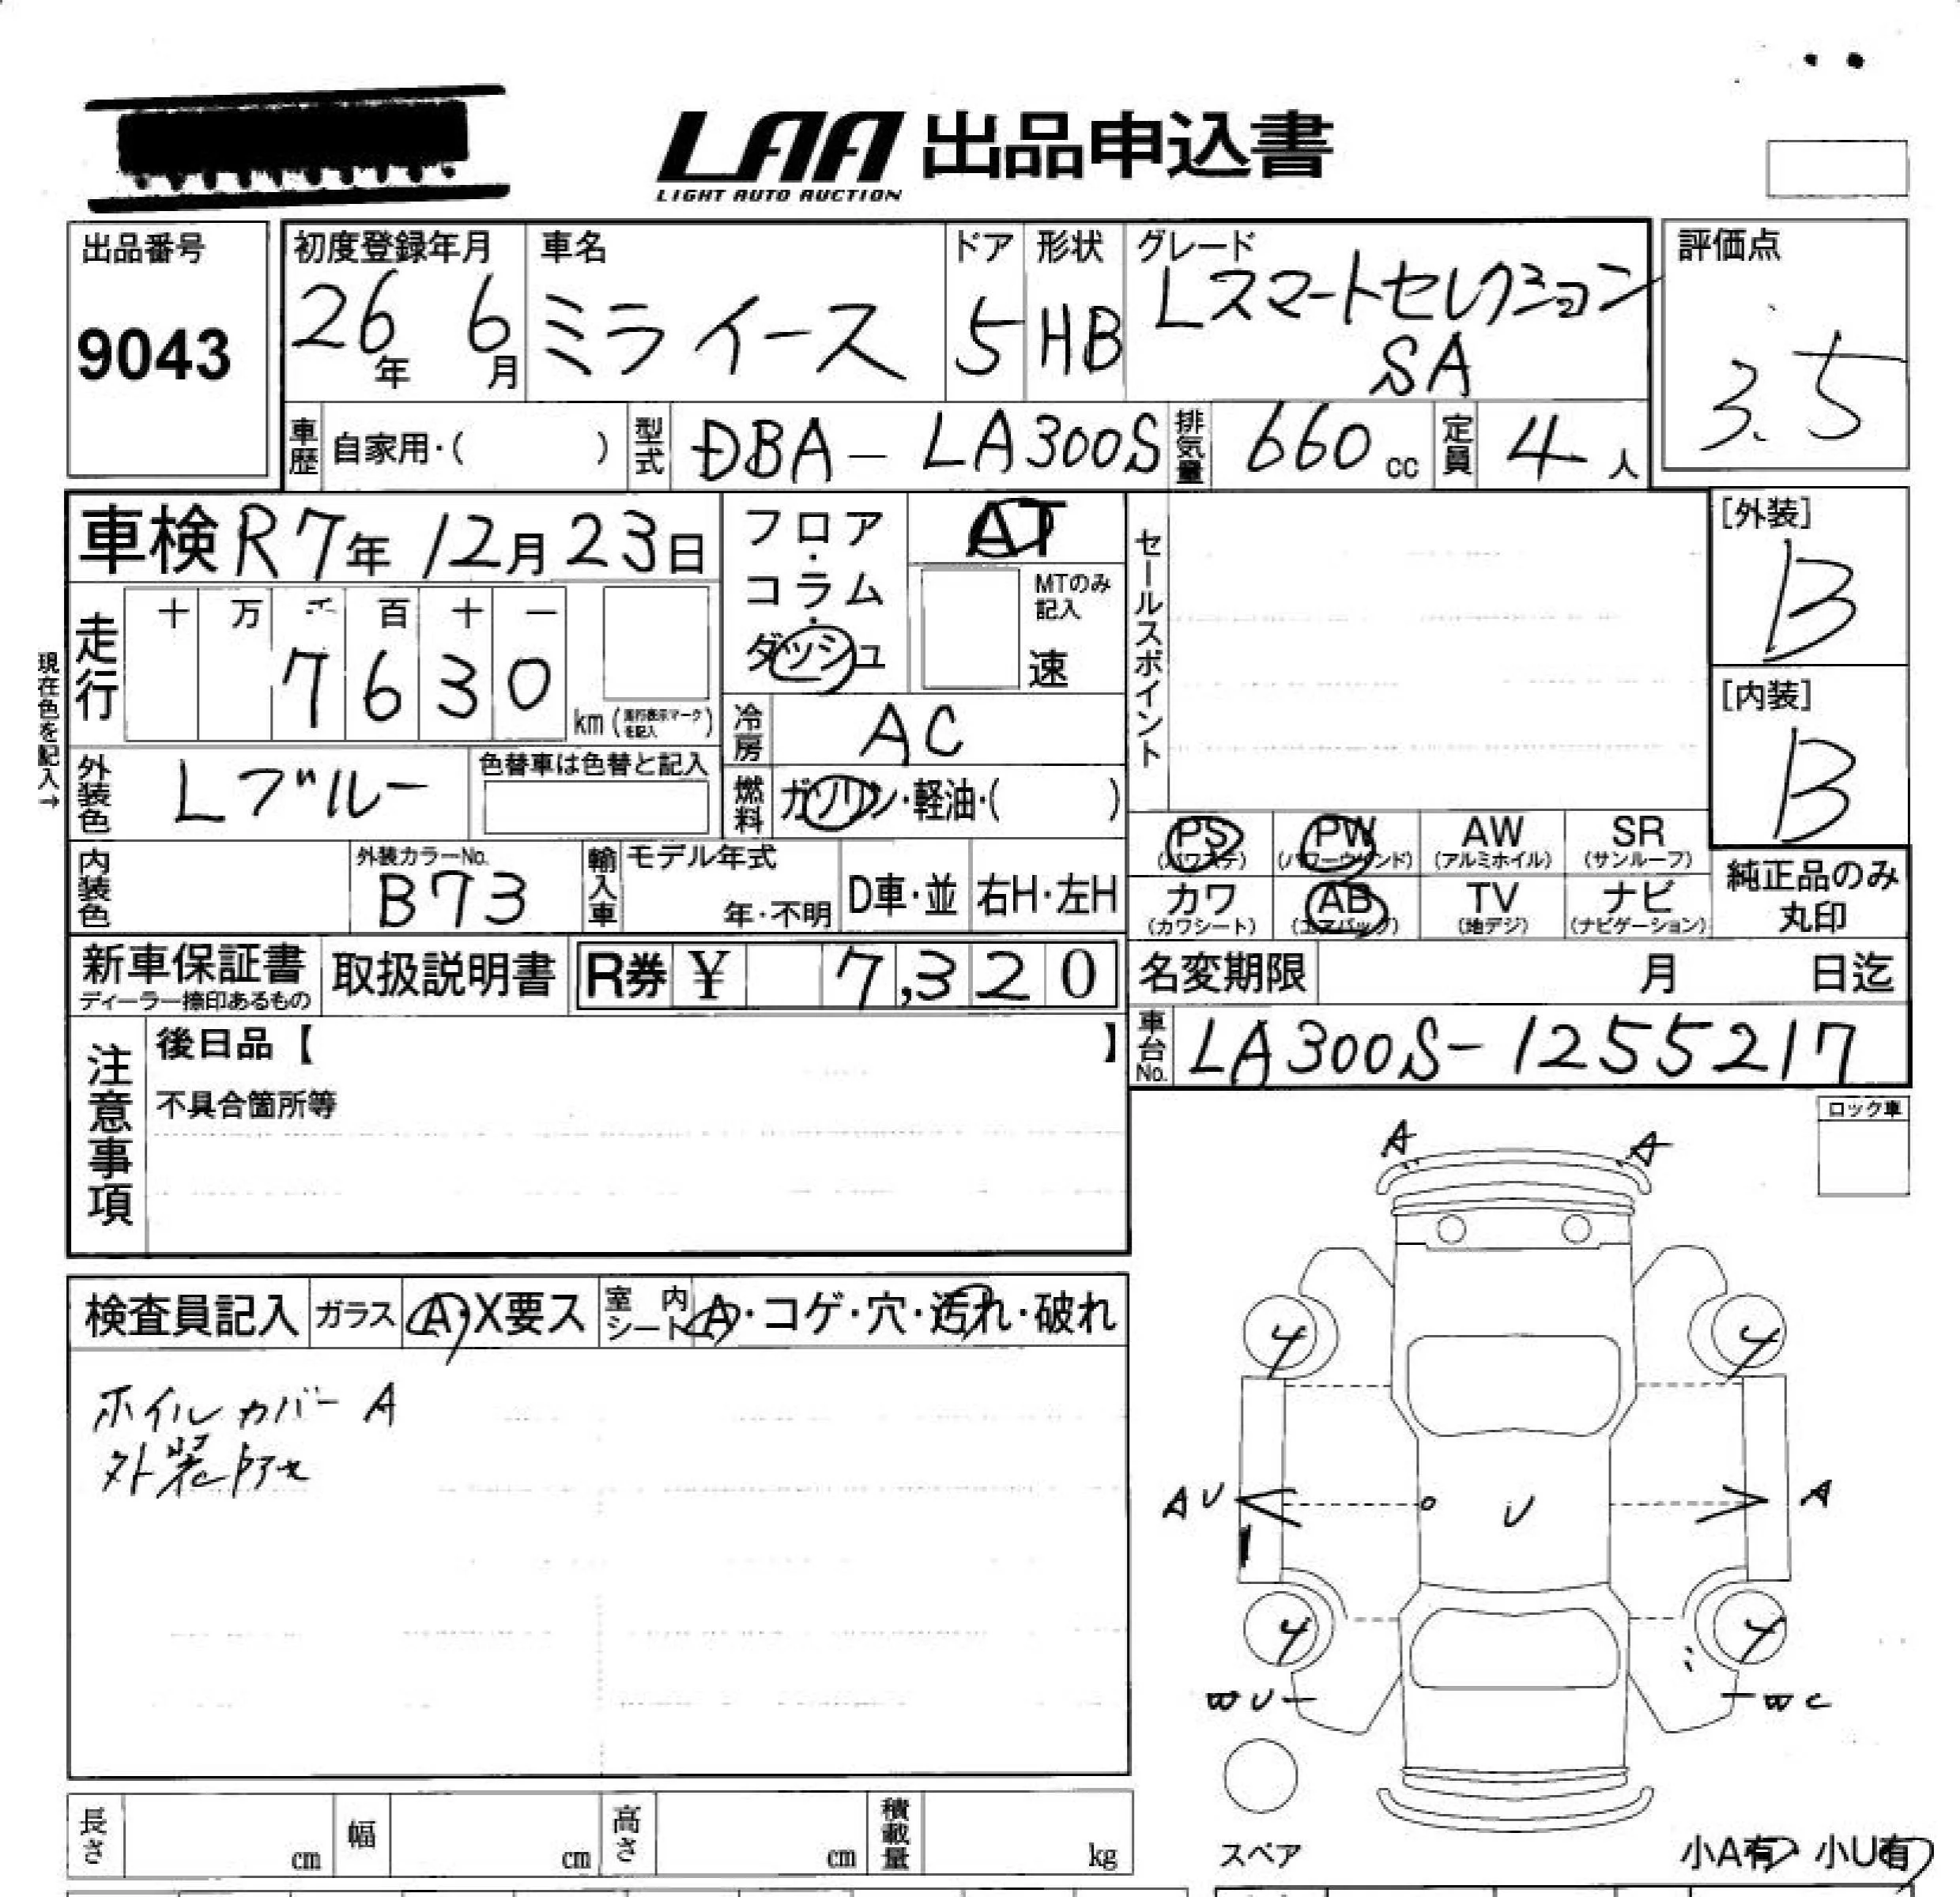 LAA 出品申込書
LIGHT AUTO AUCTION
出品番号
9043
初度登録年月
26年 6月
車名
ミライース
ドア
5
形状
HB
グレード
Lスマートセレクション
SA
評価点
3.5
車歴 自家用・( )
型式 DBA-LA300S
排気量 660 cc
定員 4 人
車検 R7年 12月 23日
フロア・コラム・ダッシュ
AT
MTのみ記入
速
セールスポイント
[外装]
B
現在色を記入→
走行
十 万 千 百 十 一
7 6 3 0
km (走行表示マークを記入)
冷房 AC
[内装]
B
外装色 Lブルー
色替車は色替と記入
燃料 ガソリン・軽油・( )
PS (パワステ)
PW (パワーウインド)
AW (アルミホイル)
SR (サンルーフ)
内装色
外装カラーNo.
B73
輸入車
モデル年式
年・不明
D車・並
右H・左H
カワ (カワシート)
AB (エアバッグ)
TV (地デジ)
ナビ (ナビゲーション)
純正品のみ
丸印
新車保証書
ディーラー捺印あるもの
取扱説明書
R券 ¥ 7,320
名変期限 月 日迄
注意事項
後日品【 】
不具合箇所等
車台No. LA300S-1255217
ロック車
A A
検査員記入
ガラス A・X要ス
室内シート A・コゲ・穴・汚れ・破れ
4 4
ホイルカバー A
外装
AU U A
4 4
WU WC
長さ cm
幅 cm
高さ cm
積載量 kg
スペア
小A有・小U有